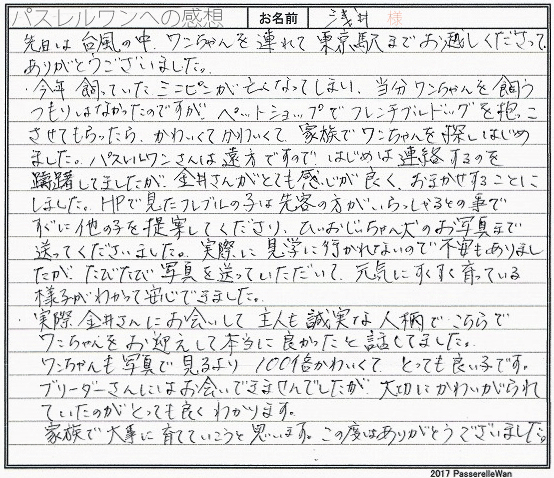 パスレルワンへの感想 お名前 浅井 様
先日は台風の中、ワンちゃんを連れて東京駅までお越しくださって
ありがとうございました。
・今年飼っていたミニピンが亡くなってしまい、当分ワンちゃんを飼う
つもりはなかったのですが、ペットショップでフレンチブルドッグを抱っこ
させてもらったら、かわいくてかわいくて、家族でワンちゃんを探しはじめ
ました。パスレルワンさんは遠方ですので、はじめは連絡するのを
躊躇してましたが、金井さんがとても感じが良く、おまかせすることに
しました。HPで見たフレブルの子は先客の方がいらっしゃるとの事で
すぐに他の子を提案してくださり、ひいおじいちゃん犬のお写真まで
送ってくださいました。実際に見学に行かれないので不安もありまし
たが、たびたび写真を送っていただいて、元気にすくすく育っている
様子がわかって安心できました。
・実際金井さんにお会いして、主人も誠実な人柄で、こちらで
ワンちゃんをお迎えして本当に良かったと話してました。
ワンちゃんも写真で見るより100倍かわいくて、とっても良い子です。
ブリーダーさんにはお会いできませんでしたが、大切にかわいがられ
ていたのがとっても良くわかります。
家族で大事に育てていこうと思います。この度はありがとうございました。
2017 PasserelleWan